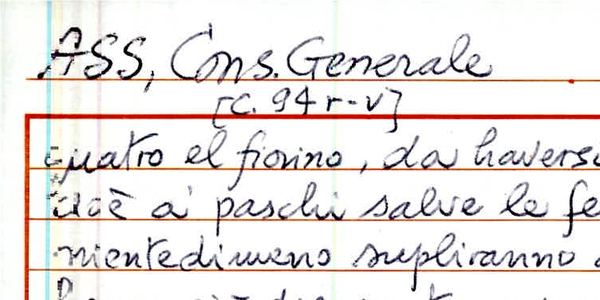 ASS, Cons. Generale
[c. 94 r-v]
quatro el fiorino, da havers
cioè a' paschi salve le fe
nientedimeno supliranno